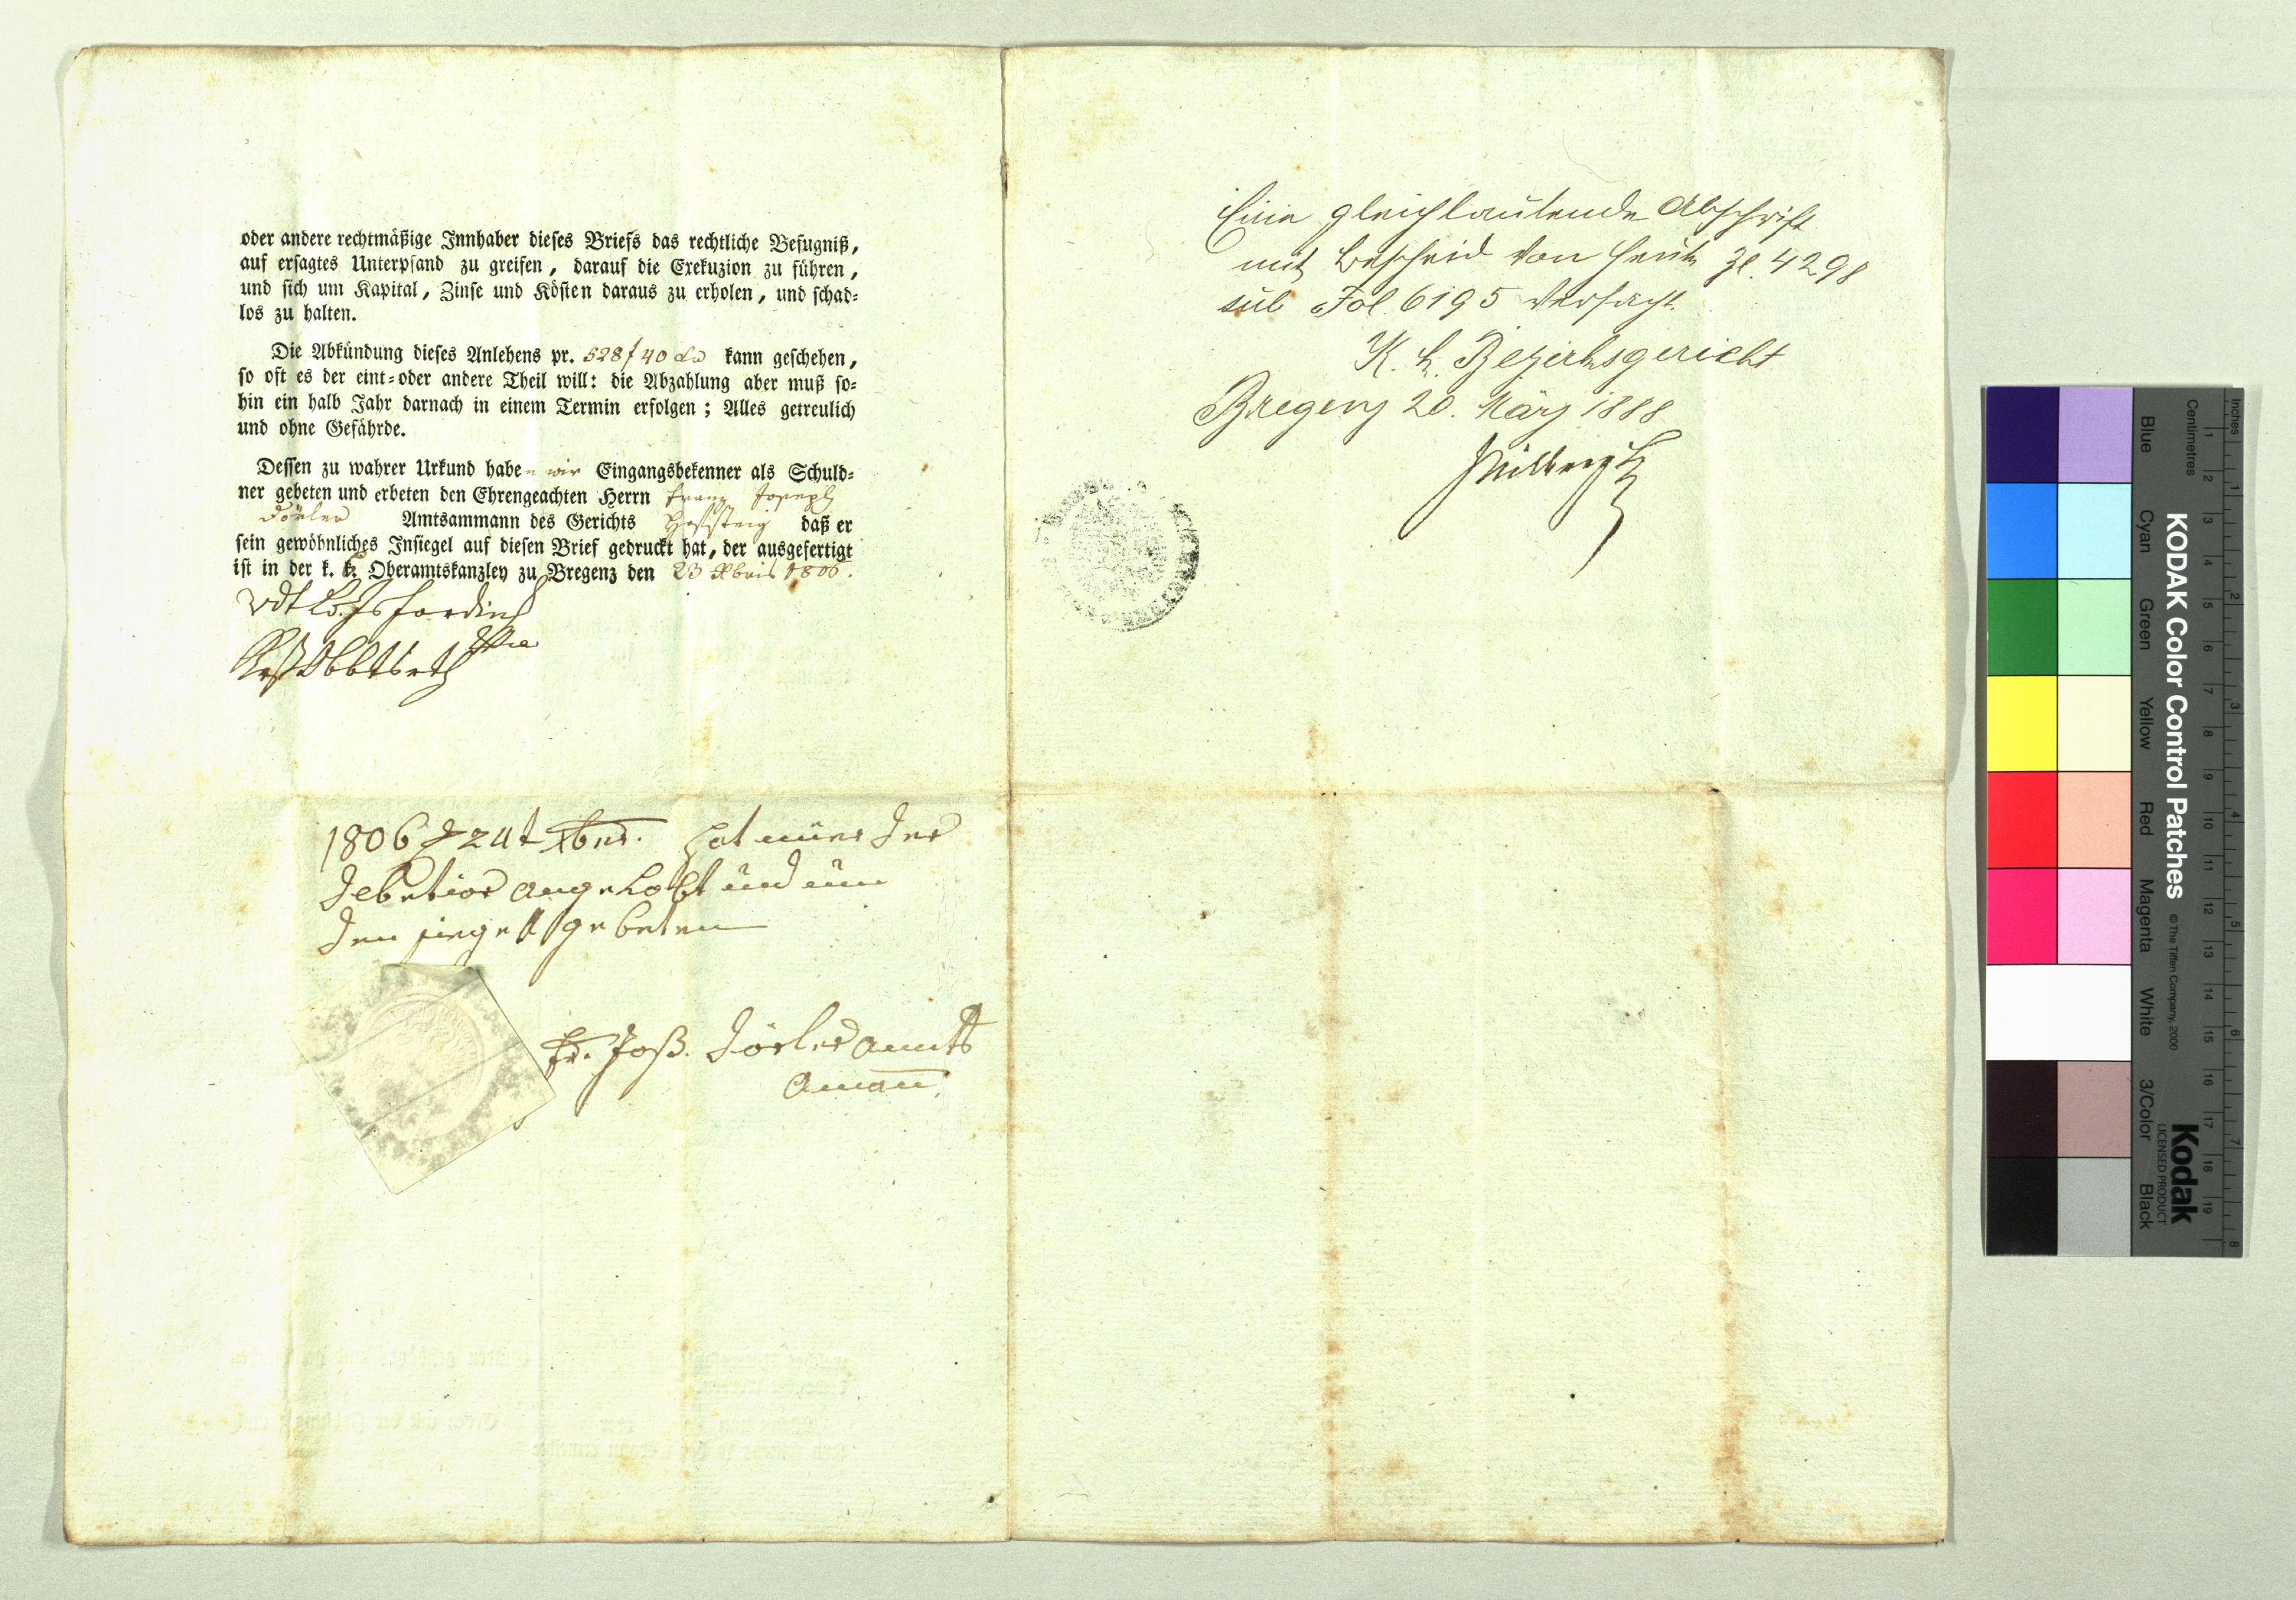 oder andere rechtmäßige Innhaber dieses Briefs das rechtliche Befugniß,
auf ersagtes Unterpfand zu greifen, darauf die Exekuzion zu führen,
und sich um Kapital, Zinse und Kösten daraus zu erholen, und schad-
los zu halten.
Die Abkündung dieses Anlehens pr. 528 f 40 kann geschehen,
so oft es der eint- oder andere Theil will: die Abzahlung aber muß so-
hin ein halb Jahr darnach in einem Termin erfolgen; Alles getreulich
und ohne Gefährde.
Dessen zu wahrer Urkund haben wir Eingangsbekenner als Schuld-
ner gebeten und erbeten den Ehrengeachten Herrn Franz Joseph
Dörler Amtsammann des Gerichts Hofsteig daß er
sein gewöhnliches Insiegel auf diesen Brief gedruckt hat, der ausgefertigt
ist in der k. k. Oberamtskanzley zu Bregenz den 23 Xbris 1806.
1806 d 24t Xber. hat mier der
debetior angelobt und um
den siegell gebeten
Fr. Joß. Dörler amts
aman.
Eine gleichlautende Abschrift
mit Bescheid von heute Zl. 4298
sub Fol. 6195 verfacht.
K. k. Bezirksgericht
Bregenz 20. März 1888
KODAK Color Control Patches
© The Tiffen Company, 2000
Kodak
LICENSED PRODUCT
Inches
Centimetres
Blue
Cyan
Green
Yellow
Red
Magenta
White
3/Color
Black
1 2 3 4 5 6 7 8 9 10 11 12 13 14 15 16 17 18 19
1 2 3 4 5 6 7 8